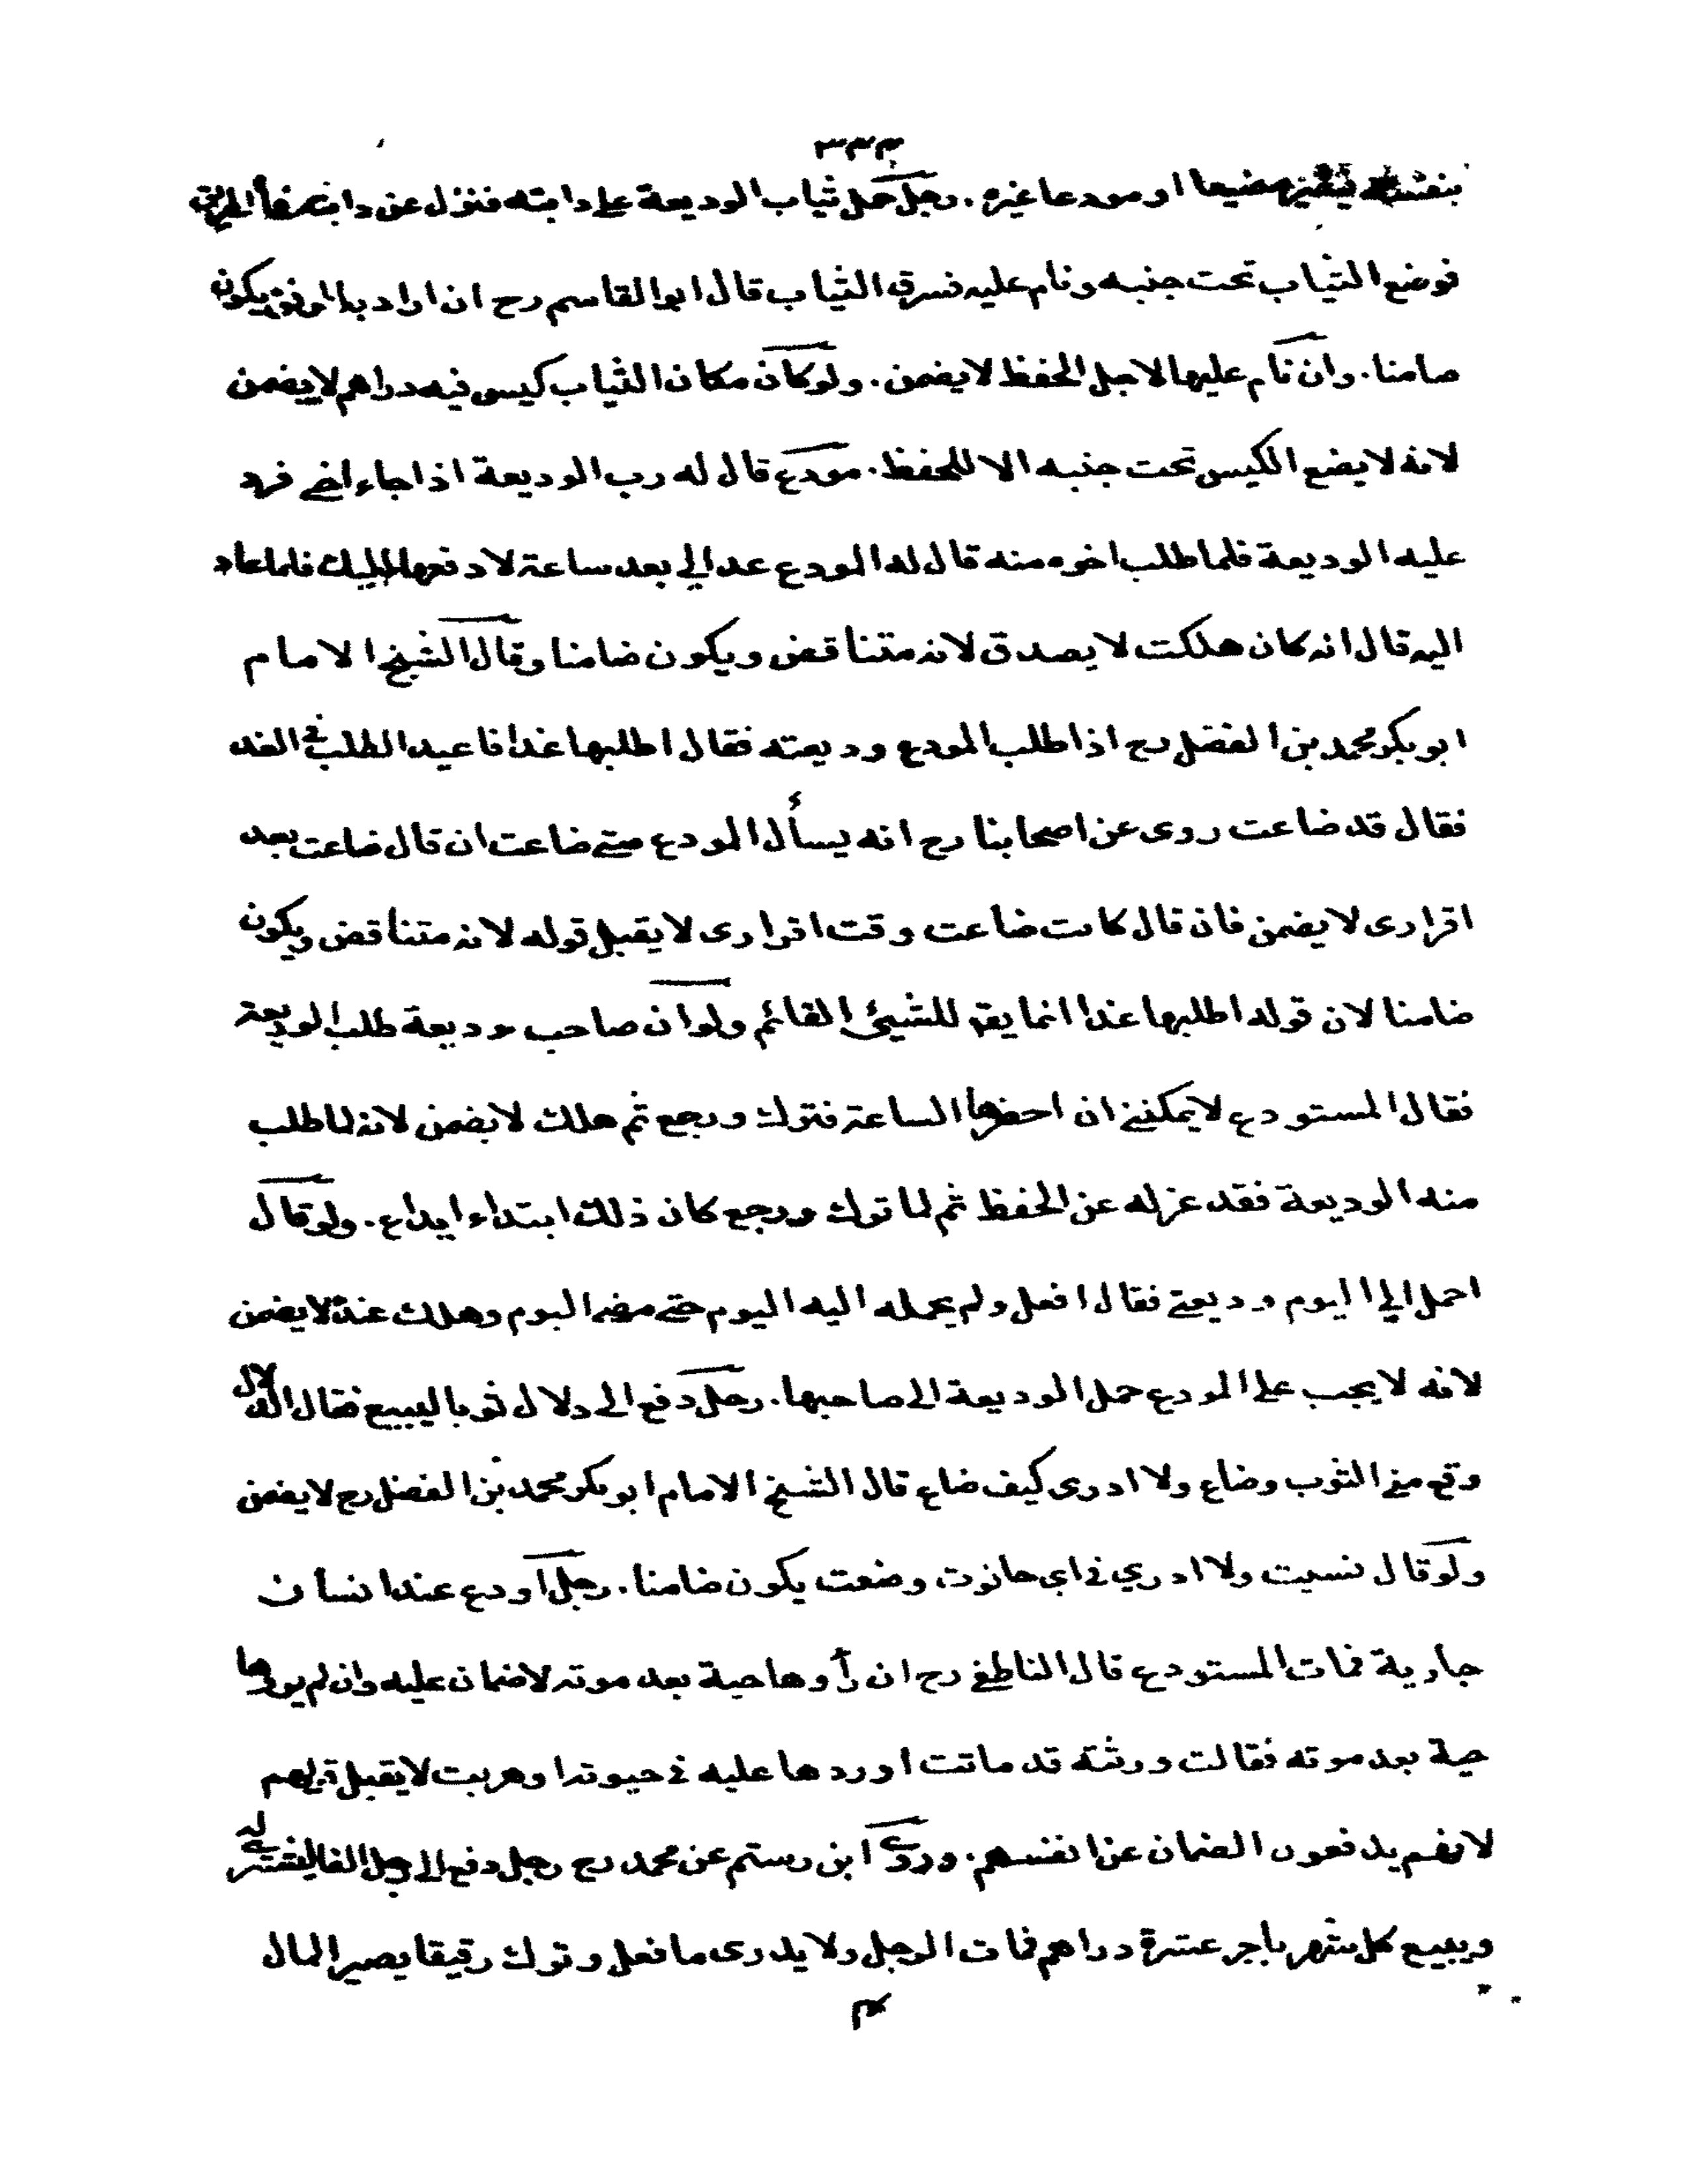 ٣٣٣
بنفسه فيصير مضيعا او مودعا غيره . رجل حمل ثياب الوديعة على دابته فنزل عن دابته في الطريق
فوضع الثياب تحت جنبه ونام عليه فسرق الثياب قال ابو القاسم رح ان اراد به الترفق يكون
ضامنا . وان نام عليها لاجل الحفظ لا يضمن . ولو كان مكان الثياب كيس فيه دراهم لا يضمن
لانه لا يضع الكيس تحت جنبه الا للحفظ . مودع قال له رب الوديعة اذا جاء اخي فرد
عليه الوديعة فلما طلب اخوه منه قال له المودع عد الي بعد ساعة لادفعها اليك فلما عاد
اليه قال انه كان هلكت لا يصدق لانه متناقض ويكون ضامنا وقال الشيخ الامام
ابو بكر محمد بن الفضل رح اذا طلب المودع وديعته فقال اطلبها غدا فاعيد الطلب في الغد
فقال قد ضاعت روى عن اصحابنا رح انه يسأل المودع متى ضاعت ان قال ضاعت بعد
اقراري لا يضمن فان قال كانت ضاعت وقت اقراري لا يقبل قوله لانه متناقض ويكون
ضامنا لان قوله اطلبها غدا انما يقع للشيئ القائم ولو ان صاحب وديعة طلب الوديعة
فقال المستودع لا يمكنني ان احضرها الساعة فترك ورجع ثم هلك لا يضمن لانه لما طلب
منه الوديعة فقد عزله عن الحفظ ثم لما ترك ورجع كان ذلك ابتداء ايداع . ولو قال
احمل الي اليوم وديعتي فقال افعل ولم يحمله اليه اليوم حتى مضى اليوم وهلك عنده لا يضمن
لانه لا يجب على المودع حمل الوديعة الى صاحبها . رجل دفع الى دلال ثوبا ليبيع فقال الدلال
وقع مني الثوب وضاع ولا ادرى كيف ضاع قال الشيخ الامام ابو بكر محمد بن الفضل رح لا يضمن
ولو قال نسيت ولا ادري في اي حانوت وضعت يكون ضامنا . رجل اودع عند انسان
جارية فمات المستودع قال الناطفي رح ان رأوها حية بعد موته لا ضمان عليه وان لم يروها
حية بعد موته فقالت ورثته قد ماتت او ردها عليه في حيوته او هربت لا يقبل قولهم
لانهم يدفعون الضمان عن انفسهم . وروى ابن رستم عن محمد رح رجل دفع الى رجل الفا ليشتري له
ويبيع كل شهر باجر عشرة دراهم فمات الرجل ولا يدرى ما فعل وترك رقيقا يصير المال